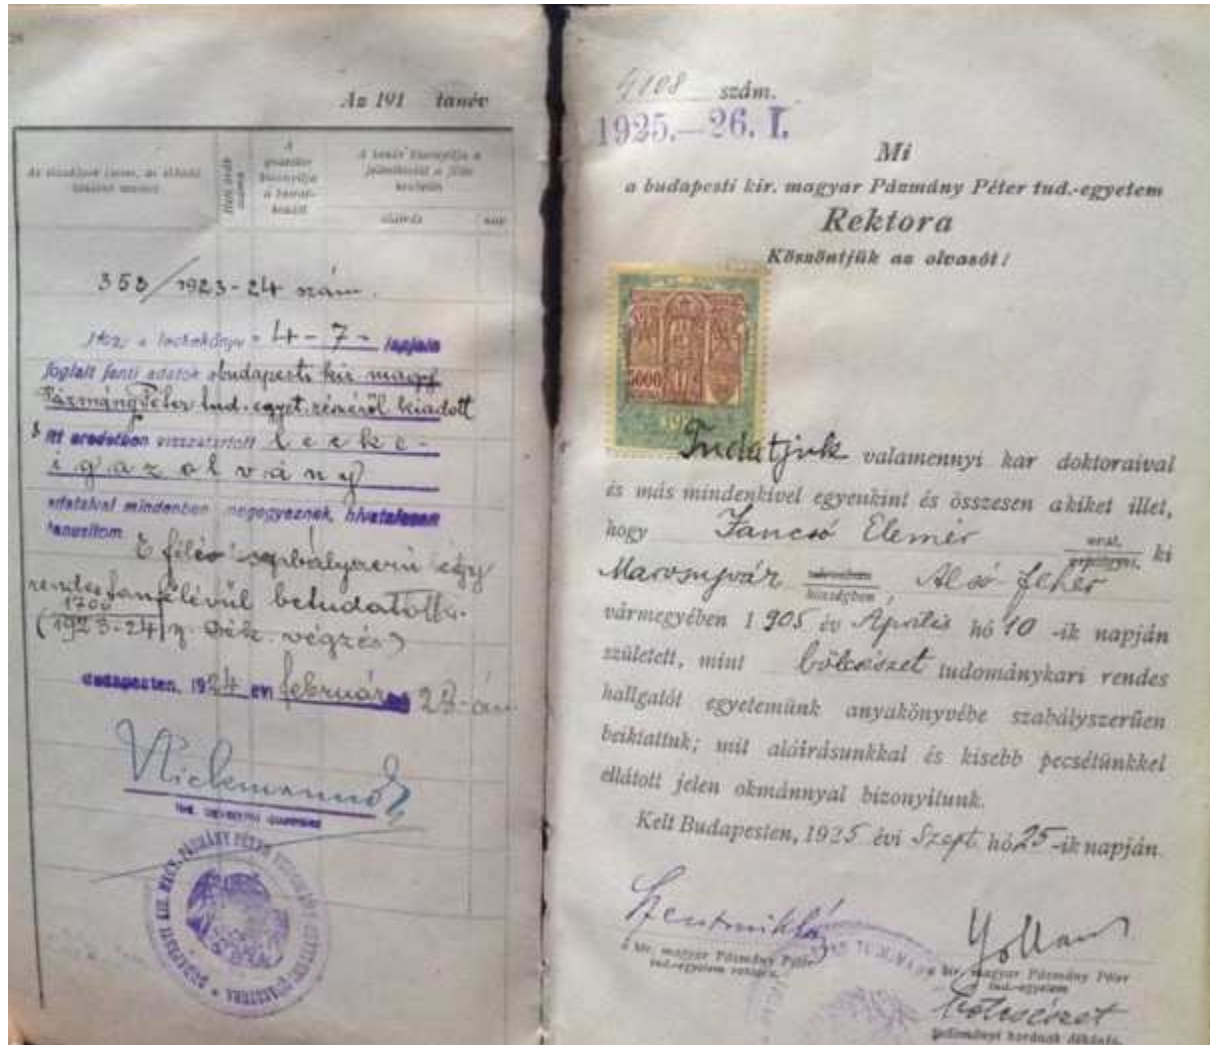 Az 191 tanév
353/1923-24 szám.
4-7- lapjain
foglalt fenti adatok a budapesti kir. magy
Pázmány Péter tud. egyet. részéről kiadott
itt eredetben visszatartott lecke-
igazolvány
adataival mindenben megegyeznek, hivatalosan
tanusitom.
E félév szabályszerű egy
rendes tanfélévül betudatott.
1700
(1923-24 végzés)
Budapesten, 1924 évi február 23-án
4108 szám.
1925.-26. I.
Mi
a budapesti kir. magyar Pázmány Péter tud.-egyetem
Rektora
Köszöntjük az olvasót!
5000
Tudatjuk valamennyi kar doktoraival
és más mindenkivel egyenkint és összesen akiket illet,
hogy Jancsó Elemér ki
Marosujvár községben, Alsó fehér
vármegyében 1905 év Április hó 10-ik napján
született, mint bölcsészet tudománykari rendes
hallgatót egyetemünk anyakönyvébe szabályszerűen
beiktattuk; mit aláirásunkkal és kisebb pecsétünkkel
ellátott jelen okmánnyal bizonyitunk.
Kelt Budapesten, 1925 évi Szept hó 25-ik napján.
Szentmiklós
a kir. magyar Pázmány Péter
tud.-egyetem rektora.
Yolland
a kir. magyar Pázmány Péter
tud.-egyetem
bölcsészet
tudományi karának dékánja.